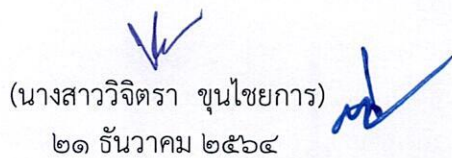 (นางสาววิจิตรา ขุนไชยการ)
๒๑ ธันวาคม ๒๕๖๔